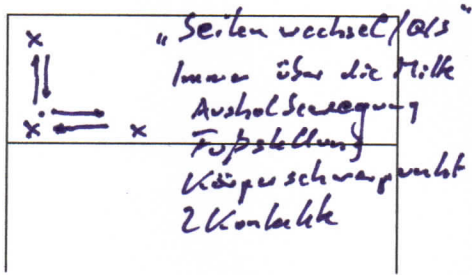 x
„Seitenwechsel/als“
Immer über die Mitte
Ausholbewegung
Fußstellung
x x
Körperschwerpunkt
2 Kontakte